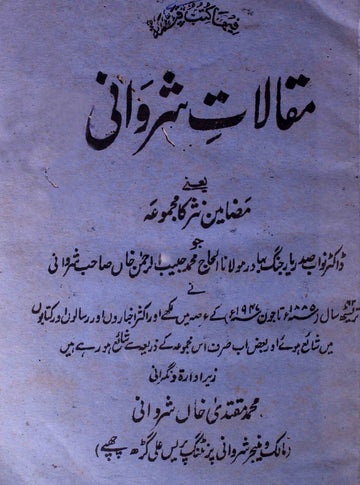 فیھا کتب قیمۃ
مقالاتِ شروانی
یعنے
مضامین نثر کا مجموعہ
جو
ڈاکٹر نواب صدر یار جنگ بہادر مولانا الحاج محمد حبیب الرحمٰن خاں صاحب شروانی
نے
تریسٹھ سال (۱۸۸۵ء تا جون ۱۹۴۷ء) کے عرصہ میں لکھے اور اکثر اخباروں اور رسالوں اور کتابوں
میں شائع ہوئے اور بعض اب صرف اس مجموعہ کے ذریعہ سے شائع ہو رہے ہیں
زیر ادارۃ و نگرانی
محمد مقتدیٰ خاں شروانی
(مالک و منیجر شروانی پرنٹنگ پریس علی گڑھ چھپے)